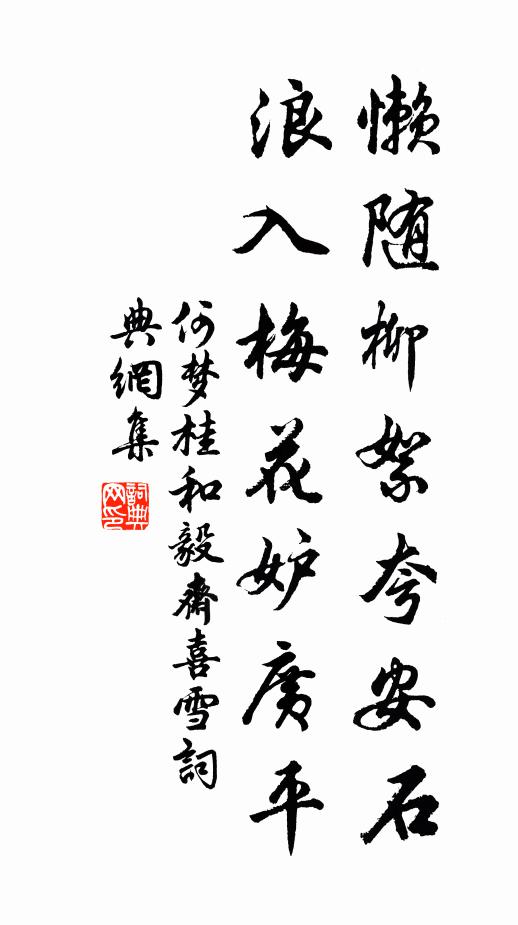 懒随柳絮夸安石
浪入梅花妒廣平
何梦桂和毅齋喜雪詞
典網集
詞典网印